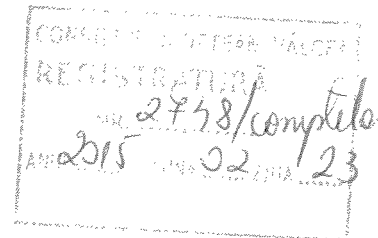 REGISTRATURĂ
NR. 2748/completa
ANUL 2015 LUNA 02 ZIUA 23